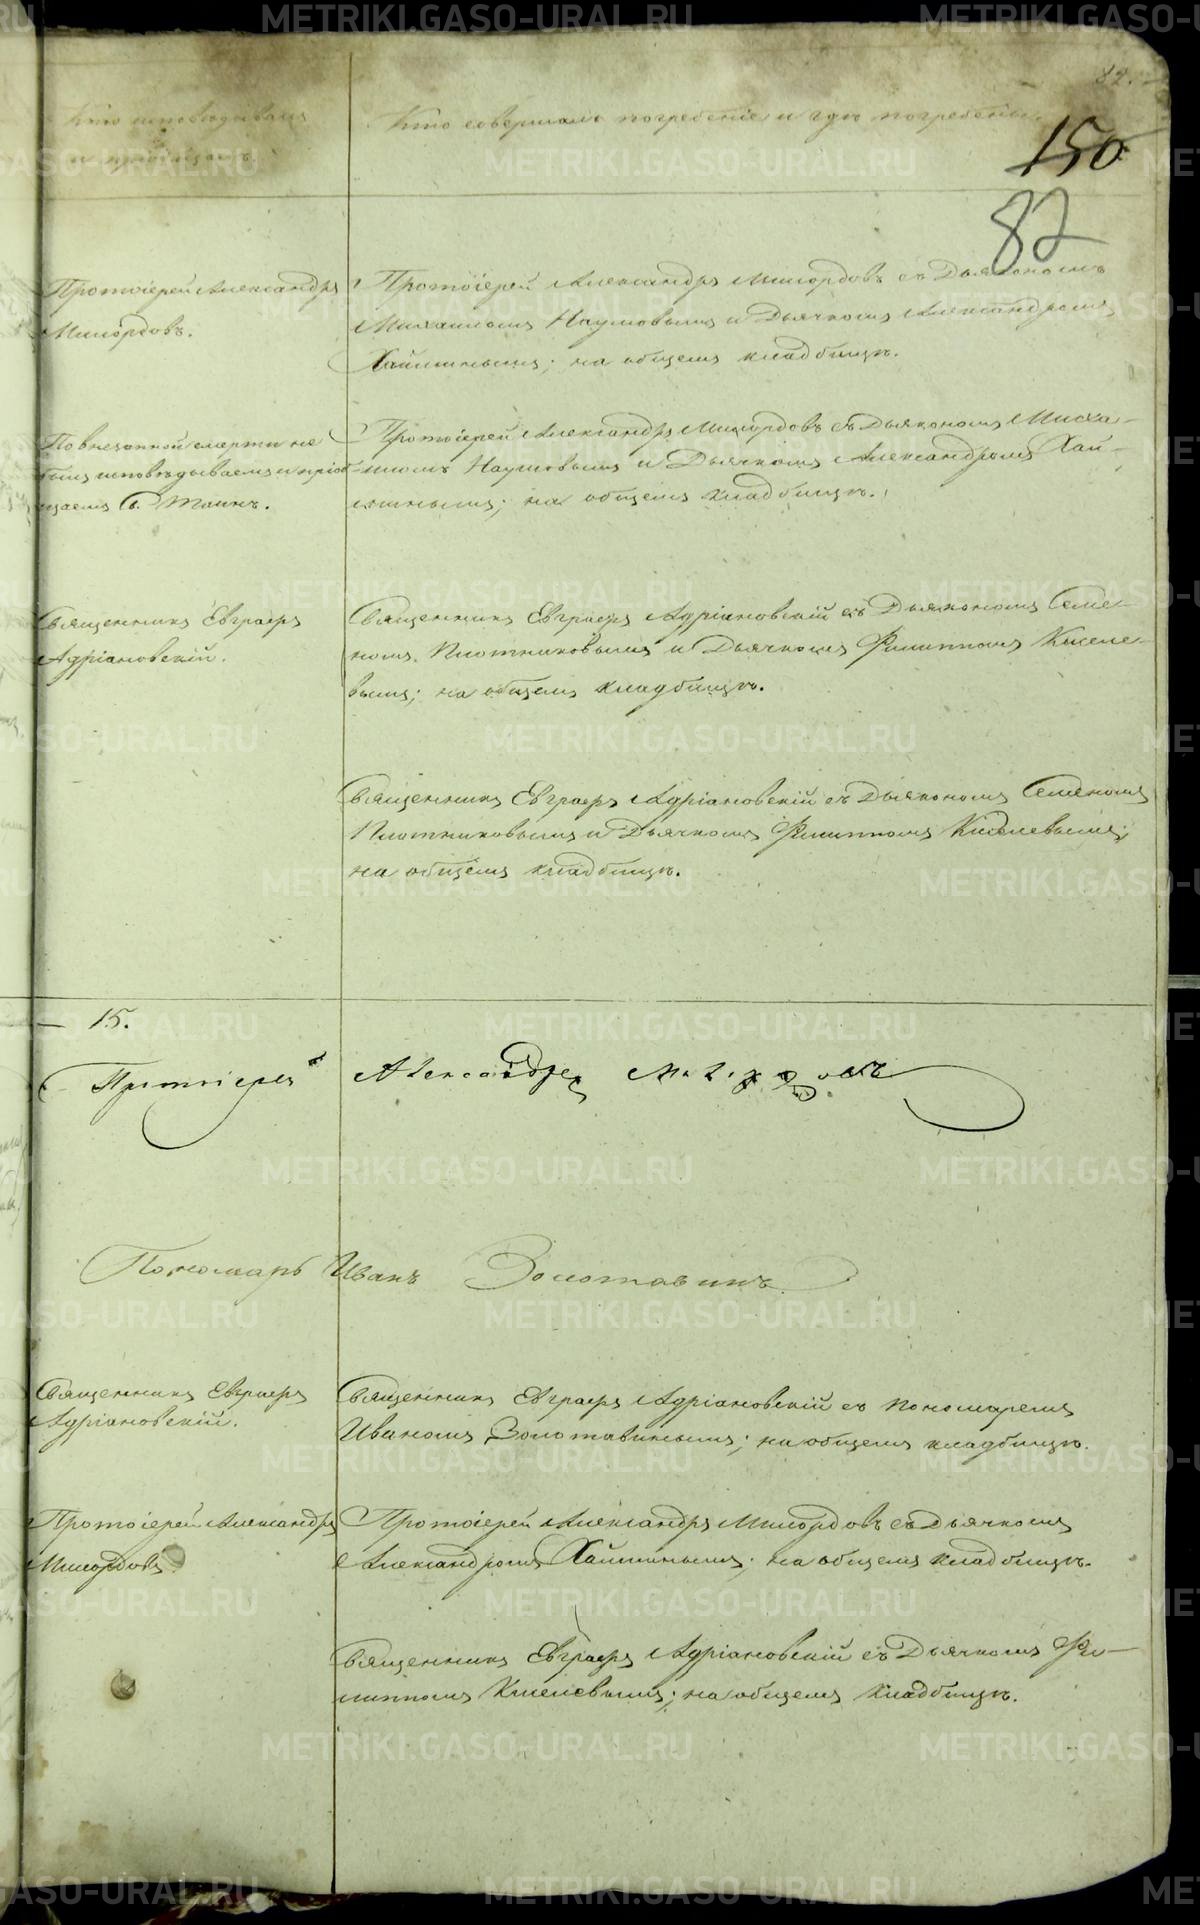 82.
Кто исповѣдывалъ
и пріобщалъ.
Кто совершалъ погребеніе и гдѣ погребены.
150
82
Протоіерей Александръ
Милордовъ.
Протоіерей Александръ Милордовъ съ Дьякономъ
Михаиломъ Наумовымъ и Дьячкомъ Александромъ
Хайминымъ; на общемъ кладбищѣ.
По внезапной смерти не
былъ исповѣдываемъ и пріоб-
щаемъ Св. Таинъ.
Протоіерей Александръ Милордовъ съ Дьякономъ Миха-
иломъ Наумовымъ и Дьячкомъ Александромъ Хай-
минымъ; на общемъ кладбищѣ.
Священникъ Евграфъ
Адріановскій.
Священникъ Евграфъ Адріановскій съ Дьякономъ Семе-
номъ Плотниковымъ и Дьячкомъ Филиппомъ Киселе-
вымъ; на общемъ кладбищѣ.
Священникъ Евграфъ Адріановскій съ Дьякономъ Семеномъ
Плотниковымъ и Дьячкомъ Филиппомъ Киселевымъ;
на общемъ кладбищѣ.
— 15.
Протоіерей Александръ Милордовъ
Пономарь Иванъ Золотавинъ
Священникъ Евграфъ
Адріановскій.
Священникъ Евграфъ Адріановскій съ пономаремъ
Иваномъ Золотавинымъ; на общемъ кладбищѣ.
Протоіерей Александръ
Милордовъ.
Протоіерей Александръ Милордовъ съ Дьячкомъ
Александромъ Хайминымъ; на общемъ кладбищѣ.
Священникъ Евграфъ Адріановскій съ Дьячкомъ Фи-
липпомъ Киселевымъ; на общемъ кладбищѣ.
METRIKI.GASO-URAL.RU